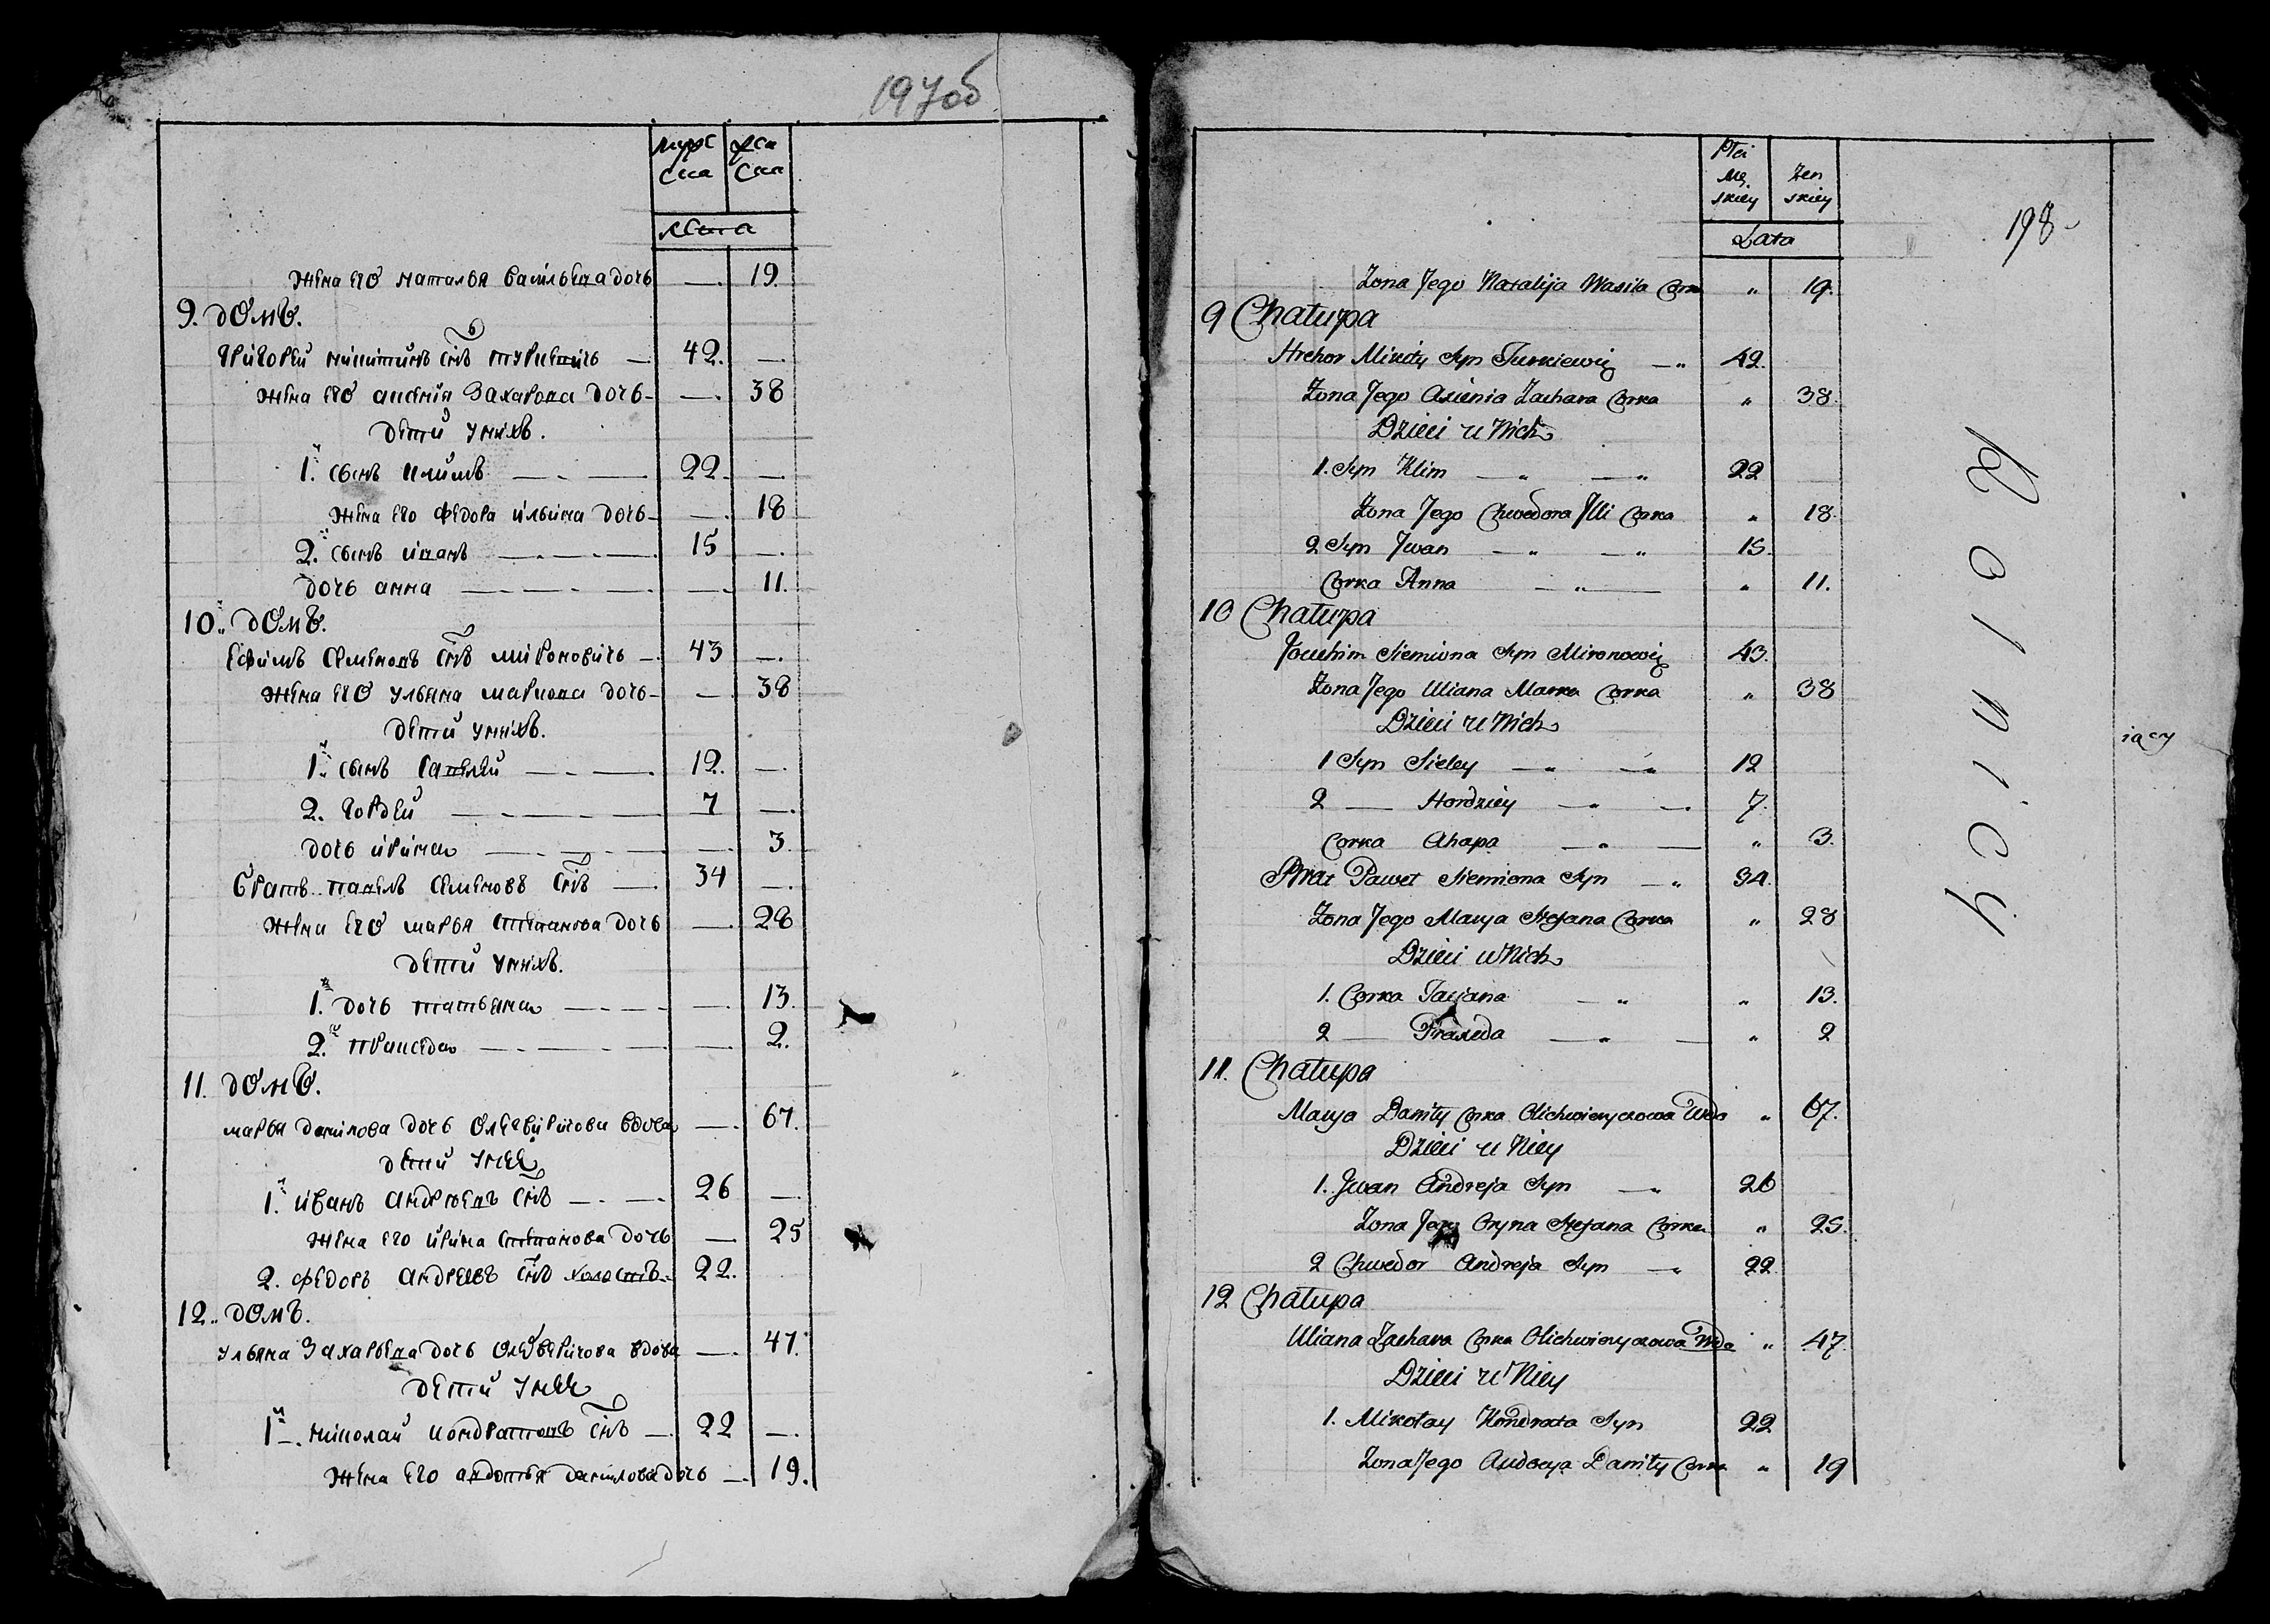 197об
мужс ска
женска
Лета
жена его наталья василева дочь — 19.
9. домъ.
григорей никитинъ снъ туркевичь — 42. —
жена его аксенiя Захарова дочь — — 38
дети унихъ.
1. сынъ климъ — 22. —
жена его федора ильина дочь — — 18
2. сынъ иванъ — 15 —
дочь анна — — 11.
10. домъ.
ефимъ семеновъ снъ мироновичь — 43 —
жена его ульяна маркова дочь — — 38
дети унихъ.
1. сынъ савелей — 12. —
2. гордей — 7 —
дочь ирина — — 3
братъ павелъ семеновъ снъ — 34 —
жена его марья степанова дочь — 28
дети унихъ.
1. дочь татьяна — — 13.
2. праседа — — 2.
11. домъ.
марья данилова дочь вдова — 67.
дети унее
1. иванъ андреевъ снъ — 26 —
жена его ирина степанова дочь — 25
2. федоръ андреевъ снъ холостъ 22.
12. домъ.
ульяна Захарьева дочь вдова — 47.
дети унее
1. николай кондратовъ снъ — 22 —
жена его авдотья данилова дочь — 19.
198
Płci Męskiey
Żenskiey
Lata
Żona Jego Natalija Wasila Corka " 19.
9 Chałupa
Hrehor Mikity Syn Turkiewicz — " 42.
Żona Jego Axienia Zachara Corka " 38.
Dzieci u Nich
1. Syn Klim — " — " 22
Żona Jego Chwedora Illi Corka " 18.
2 Syn Jwan — " — " 15.
Corka Anna — " — " 11.
10 Chałupa
Jouchim Siemiona Syn Mironowicz 43.
Żona Jego Uliana Marka Corka " 38
Dzieci u Nich
1 Syn Sieley — " — " 12
2 — Hordziey — " — 7.
Corka Ahapa — " — " 3.
Brat Paweł Siemiona Syn — " 34.
Żona Jego Marya Stefana Corka " 28
Dzieci u Nich
1. Corka Tacjana — " " 13.
2 — Praxeda — " — " 2
11. Chałupa
Marya Daniły Corka Olichwieryczowa Wda " 67.
Dzieci u Niey
1. Jwan Andreja Syn — " 26
Żona Jego Oryna Stefana Corka " 25.
2 Chwedor Andreja Syn — " 22
12 Chałupa
Uliana Zachara Corka Olichwieryczowa Wda " 47.
Dzieci u Niey
1. Mikołay Kondrata Syn 22
Żona Jego Audocya Daniły Corka " 19
Rolnicy
iący